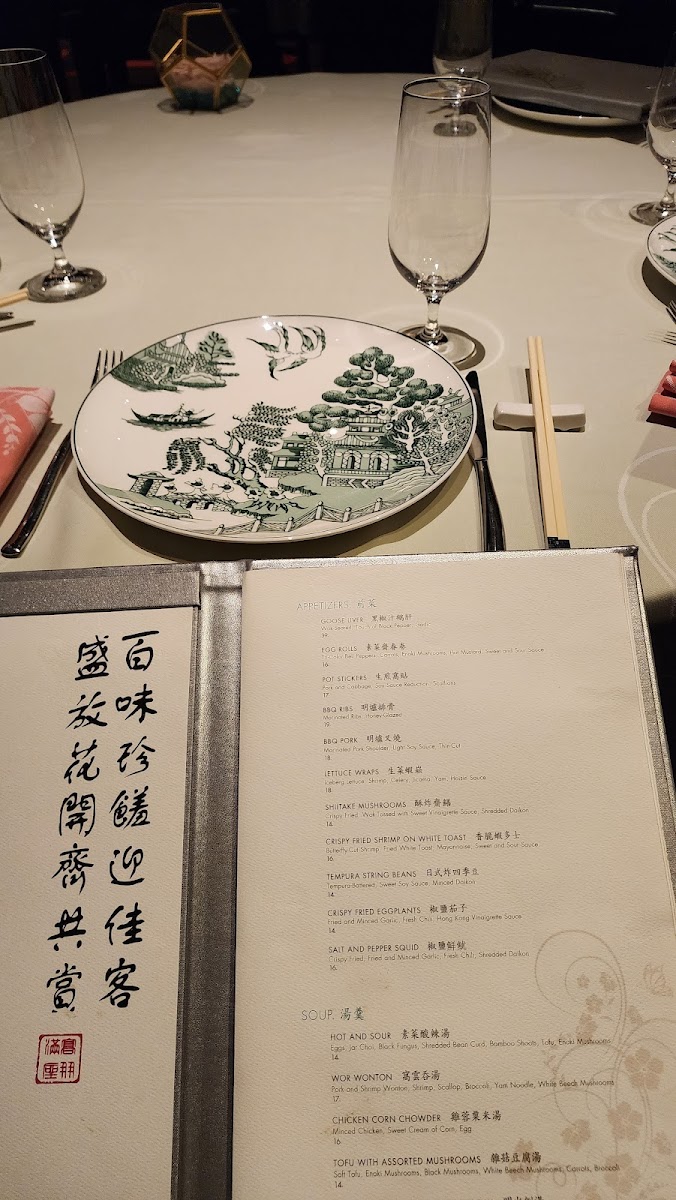 百味珍饈迎佳客
盛放花開齊共賞
高朋滿座
APPETIZERS 前菜
GOOSE LIVER 黑椒汁鵝肝
19.
EGG ROLLS 素菜齋春卷
Enoki Mushrooms, Hot Mustard, Sweet and Sour Sauce
16.
POT STICKERS 生煎窩貼
Pork and Cabbage, Soy Sauce Reduction, Scallions
17.
BBQ RIBS 明爐排骨
Marinated Ribs, Honey Glazed
19.
BBQ PORK 明爐叉燒
Marinated Pork Shoulder, Light Soy Sauce, Thin Cut
18.
LETTUCE WRAPS 生菜蝦崧
Iceberg Lettuce, Shrimp, Celery, Jicama, Yam, Hoisin Sauce
18.
SHIITAKE MUSHROOMS 酥炸齋鱔
Crispy Fried, Wok-Tossed with Sweet Vinaigrette Sauce, Shredded Daikon
14.
CRISPY FRIED SHRIMP ON WHITE TOAST 香脆蝦多士
Butterfly-Cut Shrimp, Fried White Toast, Mayonnaise, Sweet and Sour Sauce
16.
TEMPURA STRING BEANS 日式炸四季豆
Tempura-Battered, Sweet Soy Sauce, Minced Daikon
14.
CRISPY FRIED EGGPLANTS 椒鹽茄子
Fried and Minced Garlic, Fresh Chili, Hong Kong Vinaigrette Sauce
14.
SALT AND PEPPER SQUID 椒鹽鮮魷
Crispy Fried, Fried and Minced Garlic, Fresh Chili, Shredded Daikon
16.
SOUP 湯羹
HOT AND SOUR 素菜酸辣湯
Eggs, Jar Choi, Black Fungus, Shredded Bean Curd, Bamboo Shoots, Tofu, Enoki Mushrooms
14.
WOR WONTON 窩雲吞湯
Pork and Shrimp Wonton, Shrimp, Scallop, Broccoli, Yam Noodle, White Beech Mushrooms
17.
CHICKEN CORN CHOWDER 雞蓉粟米湯
Minced Chicken, Sweet Cream of Corn, Egg
16.
TOFU WITH ASSORTED MUSHROOMS 雜菇豆腐湯
Soft Tofu, Enoki Mushrooms, Black Mushrooms, White Beech Mushrooms, Carrots, Broccoli
14.